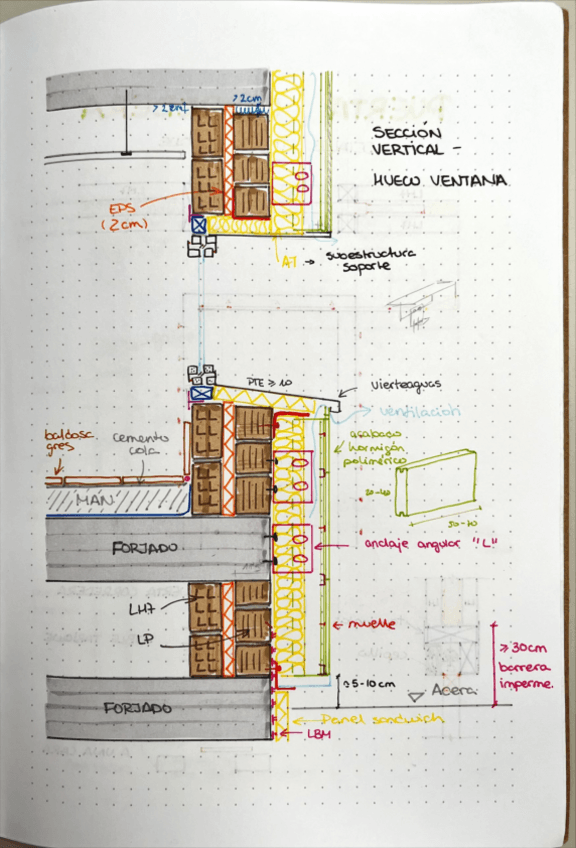 SECCIÓN
VERTICAL -
HUECO VENTANA
>2cm
>2cm
EPS
(2cm)
AT → subestructura
soporte
PTE ≥ 10
vierteaguas
ventilación
acabado
hormigón
polimérico
baldosa
gres
cemento
cola
MAN
50-70
FORJADO
anclaje angular "L"
LH7
LP
muelle
≥30cm
barrera
imperme.
5-10cm
Acera
FORJADO
Panel sandwich
LBM